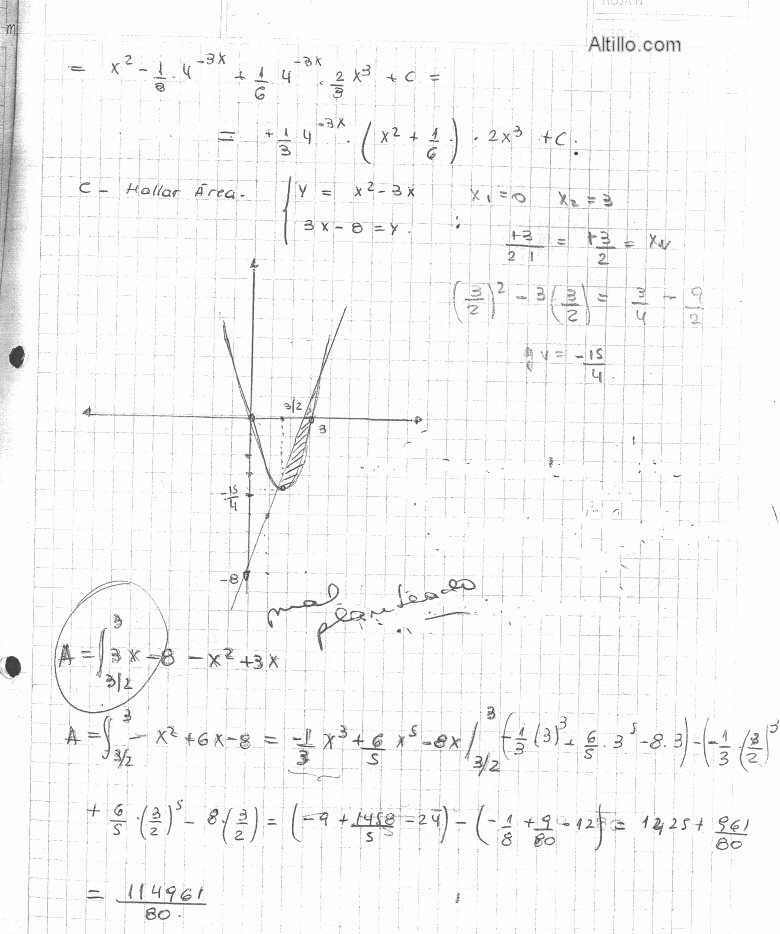 Altillo.com
= x² - 1/8 . 4^-3x + 1/6 4^-3x . 2/3 x³ + C =
= + 1/3 4^-3x . (x² + 1/6) . 2x³ + C .
C - Hallar Área. { Y = x² - 3x x₁ = 0 x₂ = 3
3x - 8 = Y .
+3/2 1 = +3/2 = xv
(3/2)² - 3(3/2) = 3/4 - 9/2
yv = -15/4
3/2
3
-15/4
-8
mal
planteado
A = ∫ 3/2 3 3x - 8 - x² + 3x
A = ∫ 3/2 3 - x² + 6x - 8 = -1/3 x³ + 6/5 x⁵ - 8x | 3/2 3 (-1/3 (3)³ + 6/5 . 3⁵ - 8.3) - (-1/3 . (3/2)³
+ 6/5 . (3/2)⁵ - 8.(3/2) = (-9 + 1458/5 - 24) - (-1/8 + 9/80 - 12) = 1425 + 961/80
= 114961/80 .